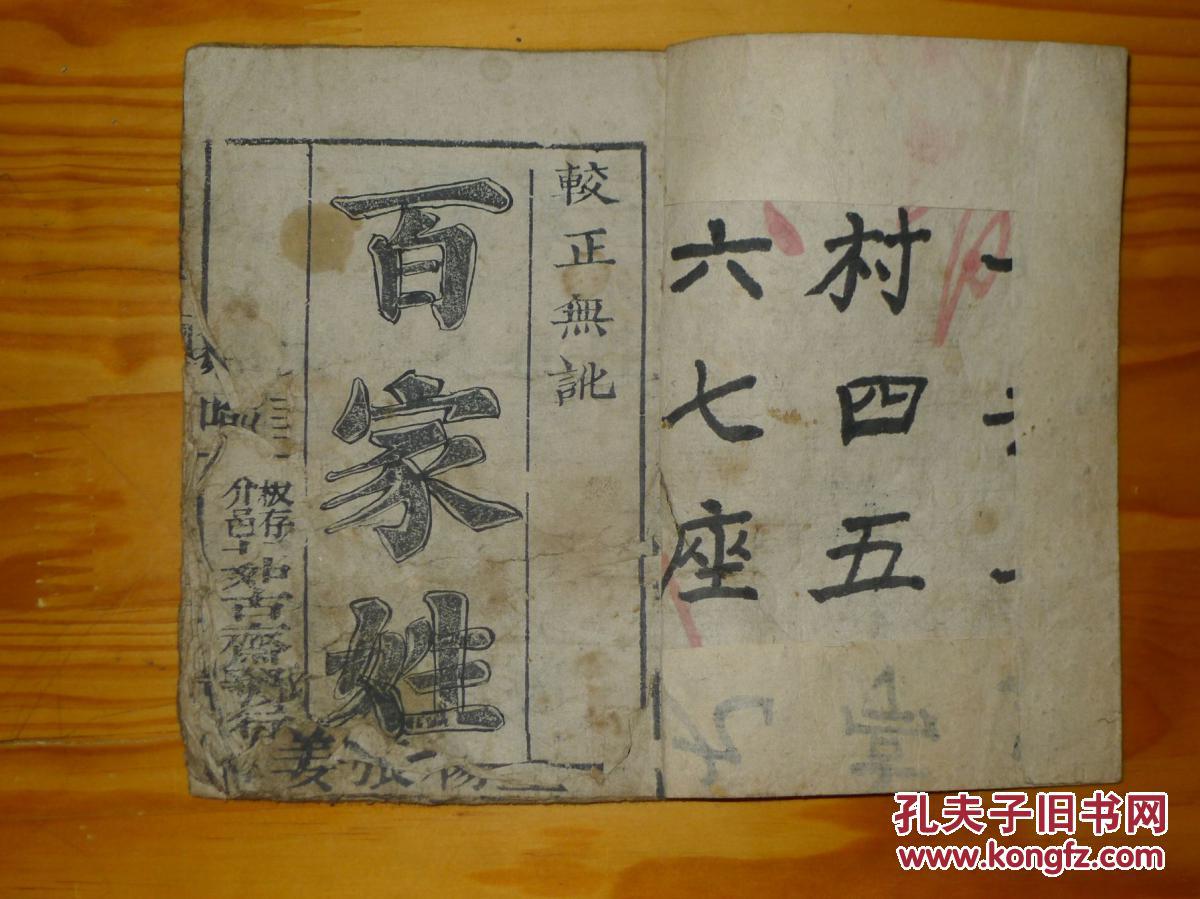 村四五
六七座
較正無訛
百家姓
板存
介邑
古齋
姜張
孔夫子旧书网
www.kongfz.com